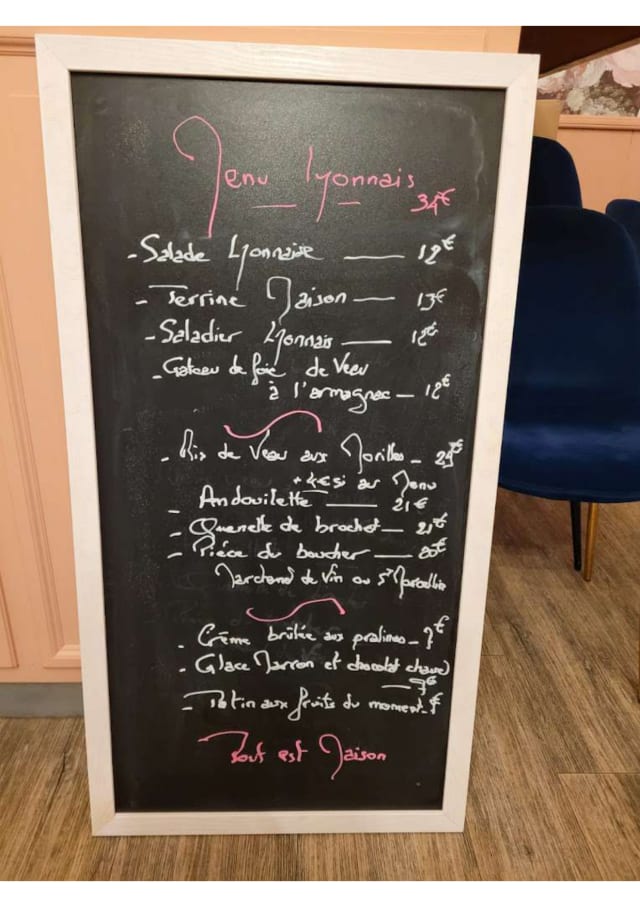 Menu Lyonnais
34€
- Salade Lyonnaise — 12€
- Terrine Maison — 13€
- Saladier Lyonnais — 12€
- Gateau de foie de Veau
à l'armagnac — 12€
- Ris de Veau aux Morilles - 29€
+ 4€ si au Menu
- Andouilette — 21€
- Quenelle de brochet — 21€
- Pièce du boucher — 20€
Marchand de Vin ou St Marcellin
- Crème brûlée aux pralines - 7€
- Glace Marron et chocolat chaud
— 7€
- aux fruits du moment - 7€
Tout est Maison